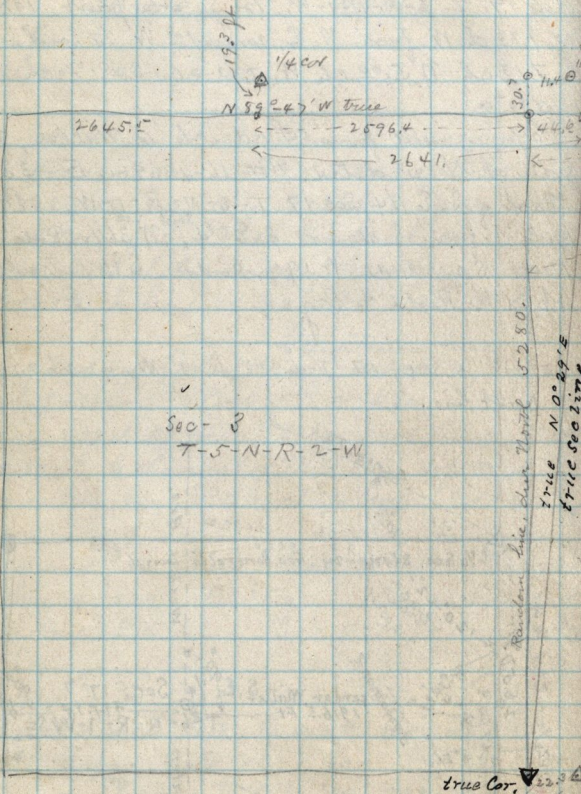 19.3 ft
1/4 cor
N 89°-47' W true
30.7
11.4
2645.5
2596.4
44.6
2641.
Sec - 3
T-5-N-R-2-W
Random line, due North 5280.
true N 0° 29' E
true Sec line
true Cor.
22.3